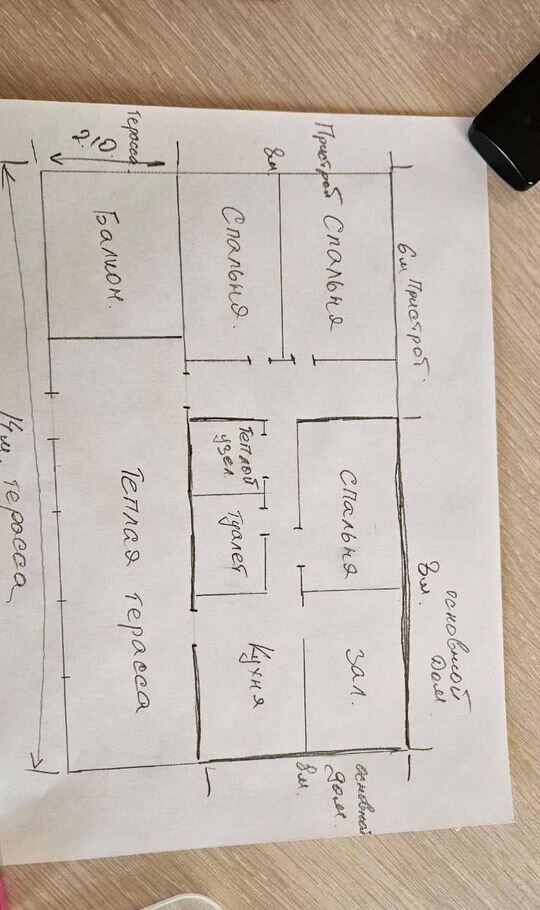 основной
Дом.
8м.
6м Пристрой.
Пристрой
8м
Спальня
Спальня.
Спальня
Зал.
основной
Дом.
8м.
Теплый
узел
туалет
Кухня
Терасса.
Балкон.
Теплая терасса
14м. терасса